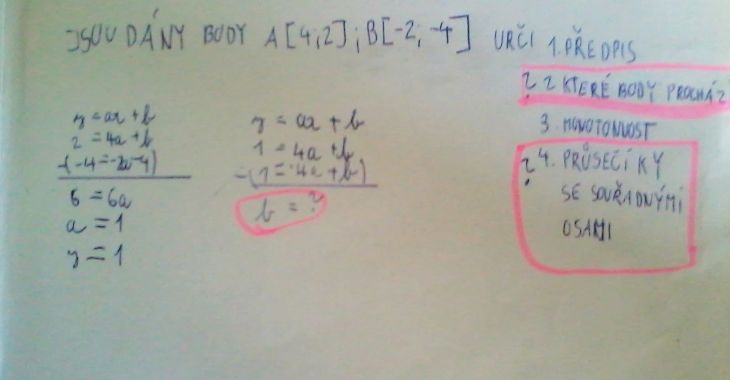 JSOU DÁNY BODY A[4;2];B[-2;-4] URČI 1.PŘEDPIS
? 2 KTERÉ BODY PROCHÁZ
3. MONOTONNOST
? 4. PRŮSEČÍKY
SE SOUŘADNÝMI
OSAMI
y = ax + b
2 = 4a + b
6 = 6a
a = 1
y = 1
y = ax + b
1 = 4a + b
b = ?